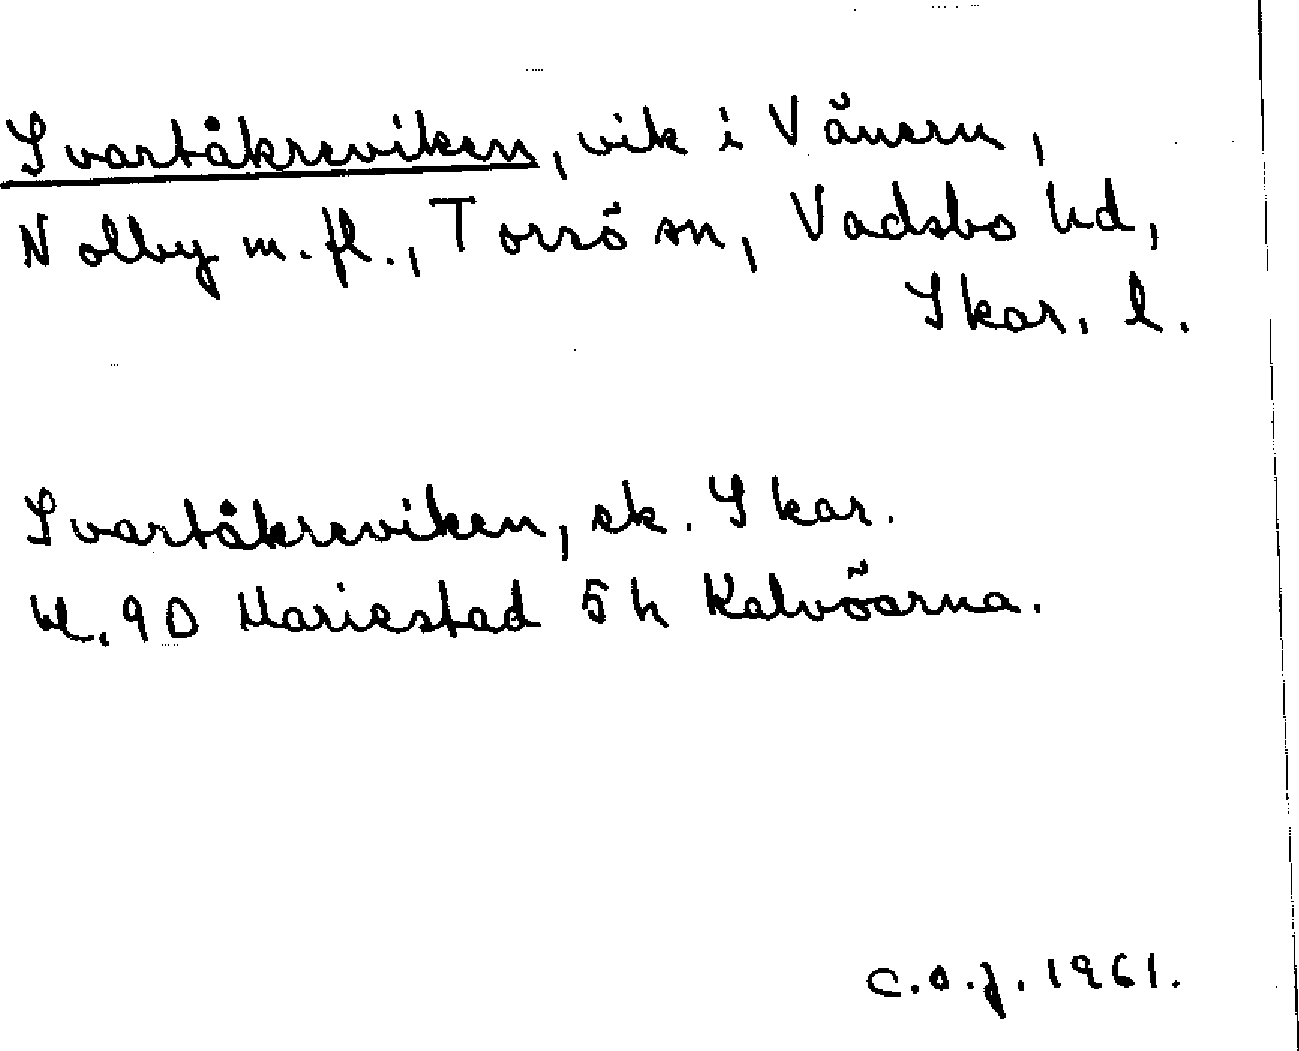 Svartåkreviken, vik i Vänern,
Nolby m.fl., Torsö sn, Vadsbo hd,
Skar. l.
Svartåkreviken, ek. Skar.
bl. 9D Mariestad 5h Kalvöarna.
C.O.J. 1961.